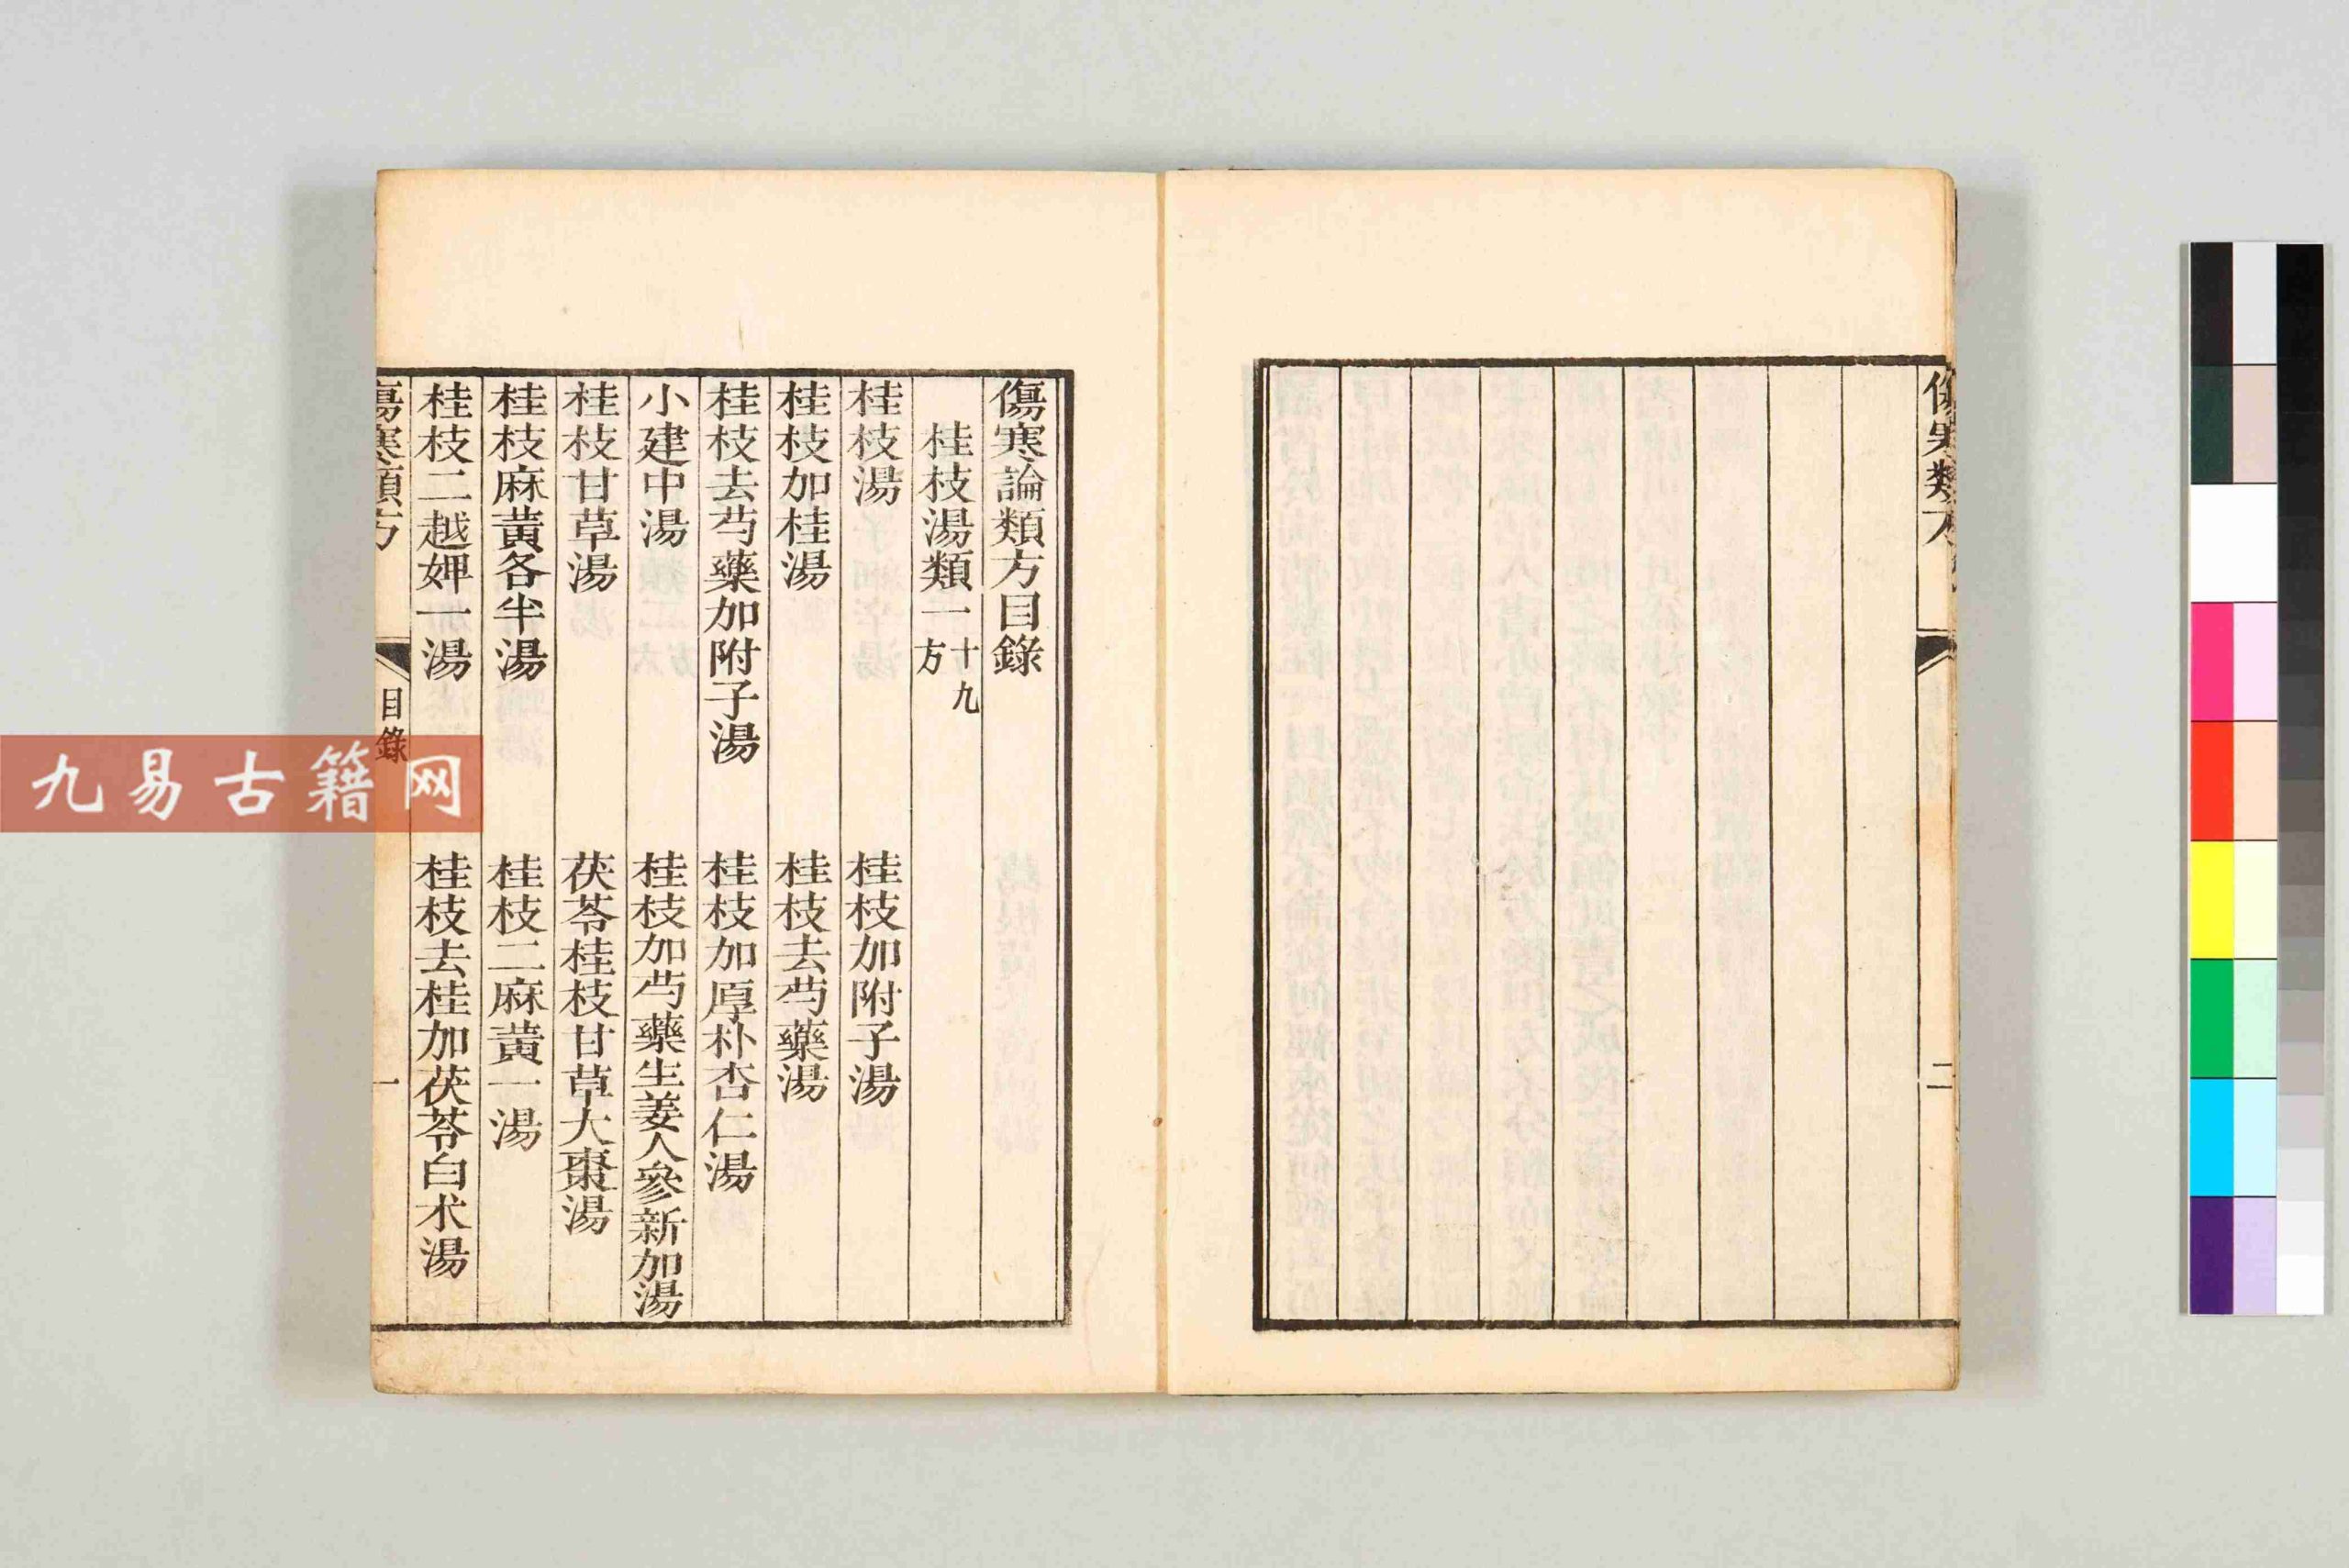 傷寒類方
二
傷寒論類方目錄
桂枝湯類一十九方
桂枝湯
桂枝加附子湯
桂枝加桂湯
桂枝去芍藥湯
桂枝去芍藥加附子湯
桂枝加厚朴杏仁湯
小建中湯
桂枝加芍藥生姜人參新加湯
桂枝甘草湯
茯苓桂枝甘草大棗湯
桂枝麻黃各半湯
桂枝二麻黃一湯
桂枝二越婢一湯
桂枝去桂加茯苓白朮湯
傷寒類方
目錄
一
九易古籍网